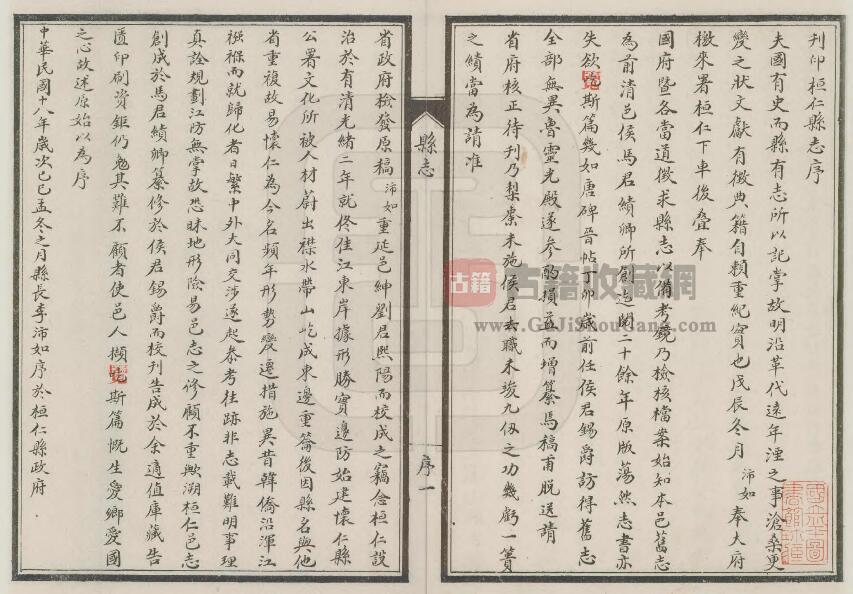 刊印桓仁縣志序
夫國有史而縣有志所以記掌故明沿革代遠年湮之事滄桑更
變之狀文獻有徵典籍自賴重紀實也戊辰冬月沛如奉大府
檄來署桓仁下車後叠奉
國府暨各當道徵求縣志以備考鏡乃檢核檔案始知本邑舊志
為前清邑侯馬君績卿所創迄閱二十餘年原版蕩然志書亦
失欲覓斯篇幾如唐碑晉帖丁卯歲前任侯君錫爵訪得舊志
全部無異魯靈光殿遂參酌損益而增纂馬稿甫脫送請
省府核正待刊乃梨棗未施侯君去職未竣九仞之功幾虧一簣
之績當為請准
縣志
序一
省政府檢發原稿沛如重延邑紳劉君熙陽而校成之竊念桓仁設
治於有清光緒二年就佟佳江東岸據形勝實邊防始建懷仁縣
公署文化所被人材蔚出襟水帶山屹成東邊重鎮後因縣名與他
省重複故易懷仁為今名頻年形勢變遷措施異昔韓僑沿渾江
襁褓而就歸化者日繁中外大同交涉遂起叅考往跡非志載難明事理
真詮規劃江防無掌故恐昧地形險易邑志之修顧不重歟溯桓仁邑志
創成於馬君績卿纂修於侯君錫爵而校刊告成於余適值庫藏告
匱印刷資鉅仍勉其難不顧者使邑人擷覽斯篇慨生愛鄉愛國
之心故述原始以為序
中華民國十八年歲次己巳孟冬之月縣長李沛如序於桓仁縣政府
古籍
古籍收藏網
www.GuJiShouCang.com